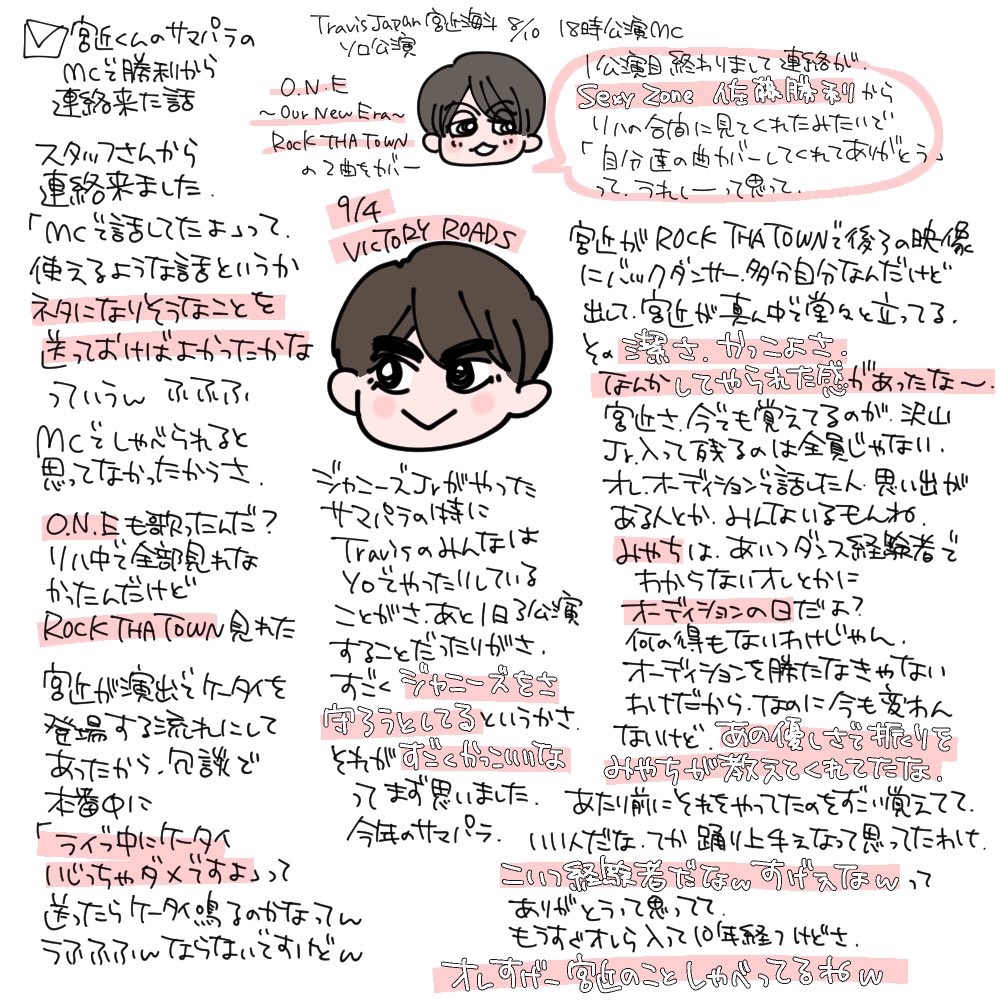 宮近くんのサマパラの
MCで勝利から
連絡来た話
Travis Japan 宮近海斗 8/10 18時公演MC
ソロ公演
O.N.E
～Our New Era～
ROCK THA TOWN
の2曲をカバー
1公演目終わりまして連絡が、
Sexy Zone 佐藤勝利から
リハの合間に見てくれたみたいで
「自分達の曲カバーしてくれてありがとう」
って、うれしーって思って、
9/4
VICTORY ROADS
スタッフさんから
連絡来ました。
「MCで話してたよ」って、
使えるような話というか
ネタになりそうなことを
送っておけばよかったかな
っていうw ふふふ
MCでしゃべられると
思ってなかったからさ、
O.N.Eも歌ったんだ?
リハ中で全部見れな
かったんだけど
ROCK THA TOWN見れた
宮近が演出でケータイを
登場する流れにして
あったから、冗談で
本番中に
「ライブ中にケータイ
いじっちゃダメですよ」って
送ったらケータイ鳴るのかなってw
うふふふw ならないですけどw
ジャニーズJrがやった
サマパラの時に
Travisのみんなは
YOでやったりしている
ことがさ、あと1日3公演
することだったりがさ、
すごくジャニーズをさ
守ろうとしてるというかさ、
それがすごくかっこいいな
ってまず思いました、
今年のサマパラ、
宮近がROCK THA TOWNで後ろの映像
にバックダンサー、多分自分なんだけど
出して、宮近が真ん中で堂々と立ってる、
その潔さ、かっこよさ、
なんかしてやられた感があったな～、
宮近さ、今でも覚えてるのが、沢山
Jr.入って残るのは全員じゃない、
オレ、オーディションで話したん、思い出が
ある人とか、みんないるもんね、
みやちは、あいつダンス経験者で
わからないオレとかに
オーディションの日だよ?
何の得もないわけじゃん、
オーディションを勝たなきゃない
わけだから、なのに今も変わん
ないけど、あの優しさで振りを
みやちが教えてくれてたな、
あたり前にそれをやってたのをすごい覚えてて、
いい人だな、てか踊り上手えなって思ってたわけ、
こいつ経験者だなw すげえなwって
ありがとうって思ってて、
もうすぐオレら入って10年経つけどさ、
オレすげー宮近のことしゃべってるねw